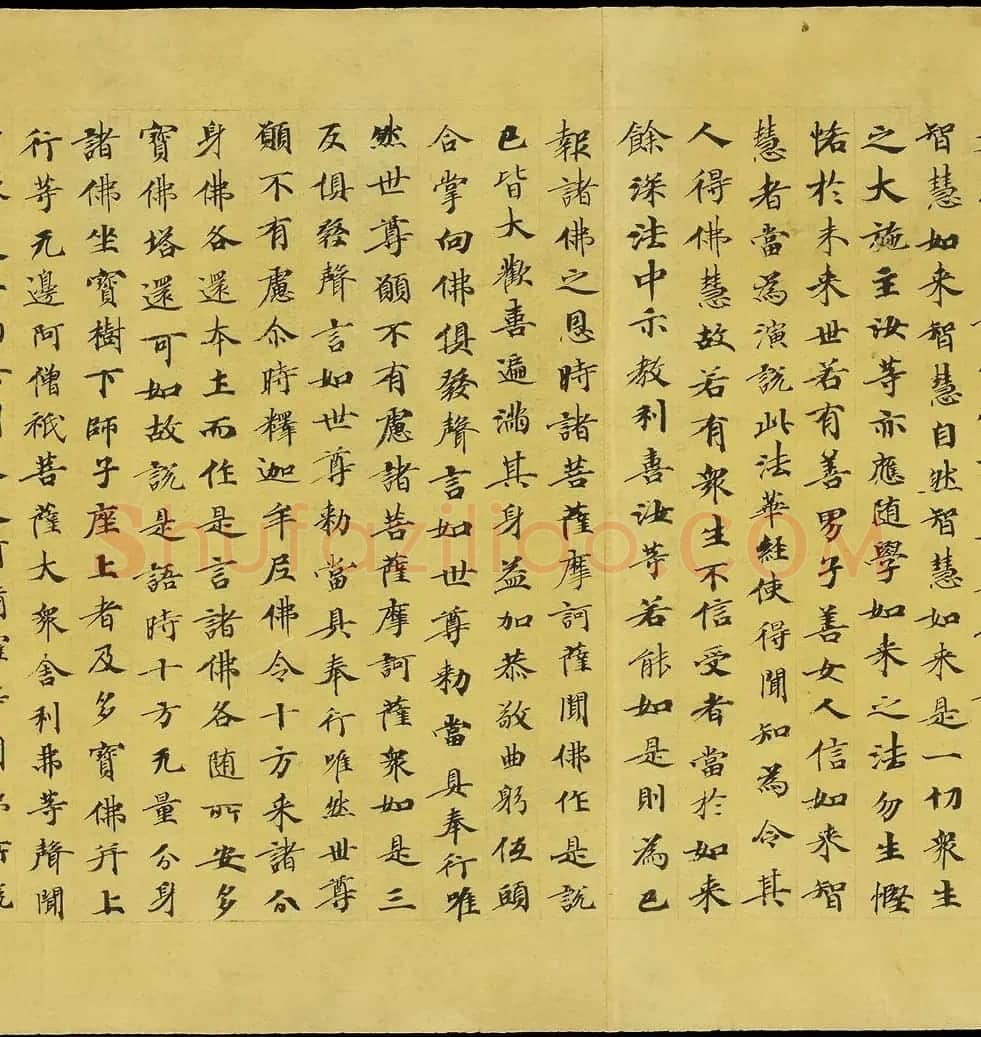 智慧如来智慧自然智慧如来是一切衆生
之大施主汝等亦應随學如来之法勿生慳
悋於未来世若有善男子善女人信如来智
慧者當為演說此法華經使得聞知為令其
人得佛慧故若有衆生不信受者當於如来
餘深法中示教利喜汝等若能如是則為已
報諸佛之恩時諸菩薩摩訶薩聞佛作是說
已皆大歡喜遍滿其身益加恭敬曲躬低頭
合掌向佛俱發聲言如世尊勅當具奉行唯
然世尊願不有慮諸菩薩摩訶薩衆如是三
反俱發聲言如世尊勅當具奉行唯然世尊
願不有慮尒時釋迦牟尼佛令十方来諸分
身佛各還本土而作是言諸佛各随所安多
寶佛塔還可如故說是語時十方无量分身
諸佛坐寶樹下師子座上者及多寶佛并上
行等无邊阿僧祇菩薩大衆舍利弗等聲聞
Shufaziliao.COM